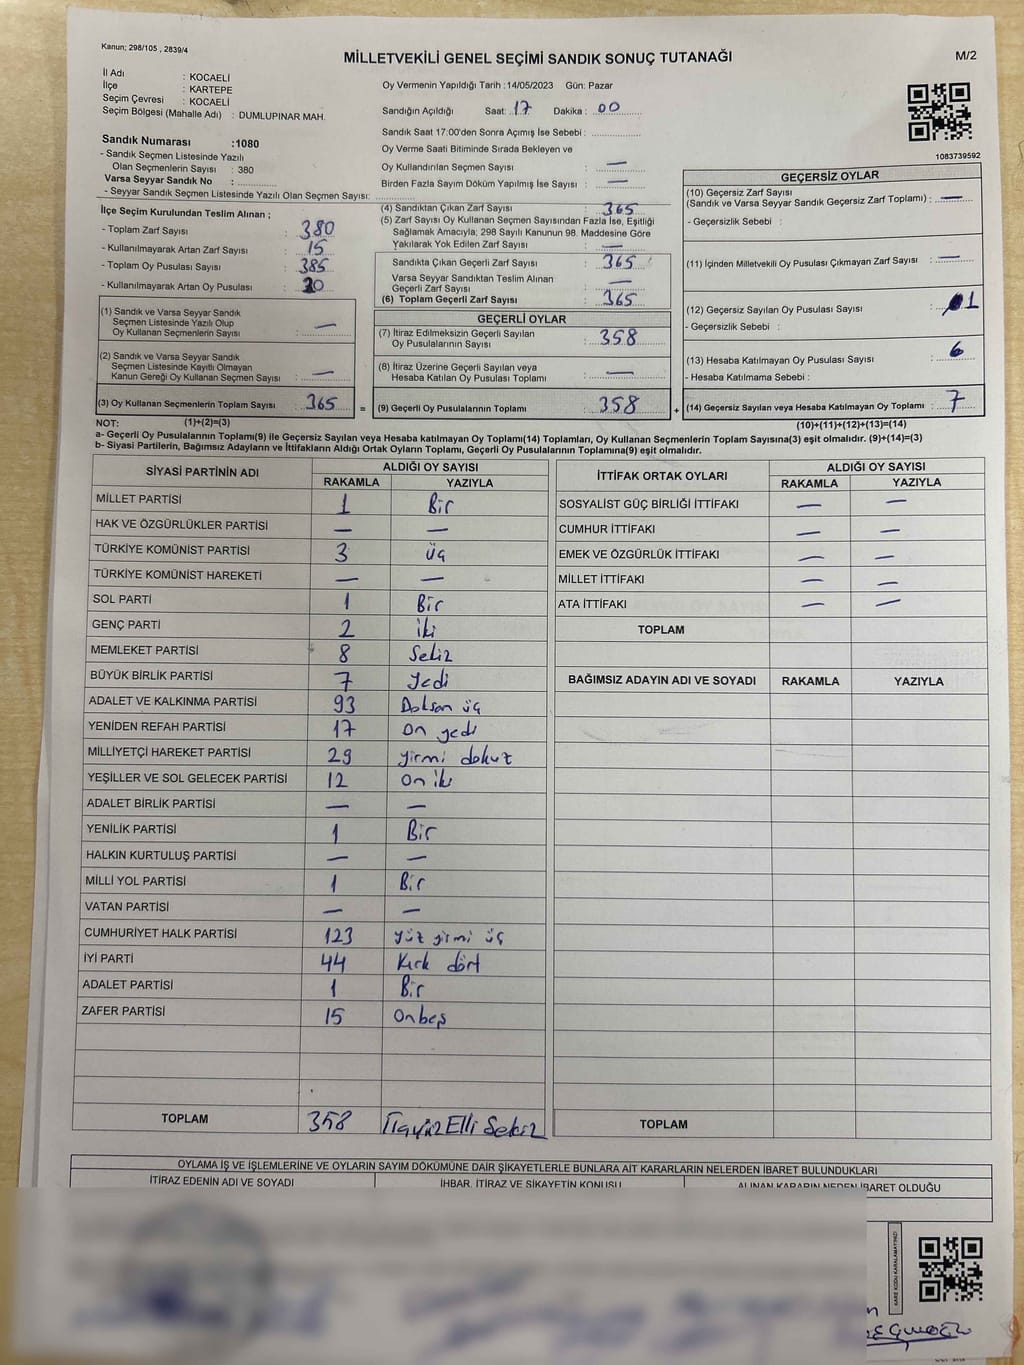 Kanun; 298/105 , 2839/4
MİLLETVEKİLİ GENEL SEÇİMİ SANDIK SONUÇ TUTANAĞI
M/2
İl Adı : KOCAELİ
İlçe : KARTEPE
Seçim Çevresi : KOCAELİ
Seçim Bölgesi (Mahalle Adı) : DUMLUPINAR MAH.
Oy Vermenin Yapıldığı Tarih : 14/05/2023 Gün: Pazar
Sandığın Açıldığı Saat: 17 Dakika : 00
Sandık Saat 17:00'den Sonra Açımış İse Sebebi :
Oy Verme Saati Bitiminde Sırada Bekleyen ve
Oy Kullandırılan Seçmen Sayısı : —
Birden Fazla Sayım Döküm Yapılmış İse Sayısı : —
1083739592
Sandık Numarası :1080
- Sandık Seçmen Listesinde Yazılı
Olan Seçmenlerin Sayısı : 380
Varsa Seyyar Sandık No :
- Seyyar Sandık Seçmen Listesinde Yazılı Olan Seçmen Sayısı:
İlçe Seçim Kurulundan Teslim Alınan ;
- Toplam Zarf Sayısı : 380
- Kullanılmayarak Artan Zarf Sayısı : 15
- Toplam Oy Pusulası Sayısı : 385
- Kullanılmayarak Artan Oy Pusulası : 20
(1) Sandık ve Varsa Seyyar Sandık
Seçmen Listesinde Yazılı Olup
Oy Kullanan Seçmenlerin Sayısı : —
(2) Sandık ve Varsa Seyyar Sandık
Seçmen Listesinde Kayıtlı Olmayan
Kanun Gereği Oy Kullanan Seçmen Sayısı : —
(3) Oy Kullanan Seçmenlerin Toplam Sayısı : 365 =
(4) Sandıktan Çıkan Zarf Sayısı : 365
(5) Zarf Sayısı Oy Kullanan Seçmen Sayısından Fazla İse, Eşitliği
Sağlamak Amacıyla; 298 Sayılı Kanunun 98. Maddesine Göre
Yakılarak Yok Edilen Zarf Sayısı : —
Sandıkta Çıkan Geçerli Zarf Sayısı : 365
Varsa Seyyar Sandıktan Teslim Alınan
Geçerli Zarf Sayısı : —
(6) Toplam Geçerli Zarf Sayısı : 365
GEÇERLİ OYLAR
(7) İtiraz Edilmeksizin Geçerli Sayılan
Oy Pusulalarının Sayısı : 358
(8) İtiraz Üzerine Geçerli Sayılan veya
Hesaba Katılan Oy Pusulası Toplamı : —
(9) Geçerli Oy Pusulalarının Toplamı : 358 +
GEÇERSİZ OYLAR
(10) Geçersiz Zarf Sayısı
(Sandık ve Varsa Seyyar Sandık Geçersiz Zarf Toplamı) : —
- Geçersizlik Sebebi :
(11) İçinden Milletvekili Oy Pusulası Çıkmayan Zarf Sayısı : —
(12) Geçersiz Sayılan Oy Pusulası Sayısı : 1
- Geçersizlik Sebebi :
(13) Hesaba Katılmayan Oy Pusulası Sayısı : 6
- Hesaba Katılmama Sebebi :
(14) Geçersiz Sayılan veya Hesaba Katılmayan Oy Toplamı : 7
NOT: (1)+(2)=(3) (10)+(11)+(12)+(13)=(14)
a- Geçerli Oy Pusulalarının Toplamı(9) ile Geçersiz Sayılan veya Hesaba katılmayan Oy Toplamı(14) Toplamları, Oy Kullanan Seçmenlerin Toplam Sayısına(3) eşit olmalıdır. (9)+(14)=(3)
b- Siyasi Partilerin, Bağımsız Adayların ve İttifakların Aldığı Ortak Oyların Toplamı, Geçerli Oy Pusulalarının Toplamına(9) eşit olmalıdır.
SİYASİ PARTİNİN ADI ALDIĞI OY SAYISI
RAKAMLA YAZIYLA
MİLLET PARTİSİ 1 Bir
HAK VE ÖZGÜRLÜKLER PARTİSİ — —
TÜRKİYE KOMÜNİST PARTİSİ 3 üç
TÜRKİYE KOMÜNİST HAREKETİ — —
SOL PARTİ 1 Bir
GENÇ PARTİ 2 iki
MEMLEKET PARTİSİ 8 Sekiz
BÜYÜK BİRLİK PARTİSİ 7 yedi
ADALET VE KALKINMA PARTİSİ 93 Doksan üç
YENİDEN REFAH PARTİSİ 17 on yedi
MİLLİYETÇİ HAREKET PARTİSİ 29 yirmi dokuz
YEŞİLLER VE SOL GELECEK PARTİSİ 12 on iki
ADALET BİRLİK PARTİSİ — —
YENİLİK PARTİSİ 1 Bir
HALKIN KURTULUŞ PARTİSİ — —
MİLLİ YOL PARTİSİ 1 Bir
VATAN PARTİSİ — —
CUMHURİYET HALK PARTİSİ 123 yüz yirmi üç
İYİ PARTİ 44 Kırk dört
ADALET PARTİSİ 1 Bir
ZAFER PARTİSİ 15 Onbeş
TOPLAM 358 Üçyüz Elli Sekiz
İTTİFAK ORTAK OYLARI ALDIĞI OY SAYISI
RAKAMLA YAZIYLA
SOSYALİST GÜÇ BİRLİĞİ İTTİFAKI — —
CUMHUR İTTİFAKI — —
EMEK VE ÖZGÜRLÜK İTTİFAKI — —
MİLLET İTTİFAKI — —
ATA İTTİFAKI — —
TOPLAM
BAĞIMSIZ ADAYIN ADI VE SOYADI RAKAMLA YAZIYLA
TOPLAM
OYLAMA İŞ VE İŞLEMLERİNE VE OYLARIN SAYIM DÖKÜMÜNE DAİR ŞİKAYETLERLE BUNLARA AİT KARARLARIN NELERDEN İBARET BULUNDUKLARI
İTİRAZ EDENİN ADI VE SOYADI İHBAR, İTİRAZ VE ŞİKAYETİN KONUSU ALINAN KARARIN NEDEN İBARET OLDUĞU
KARE KODU KARALAMAYINIZ!